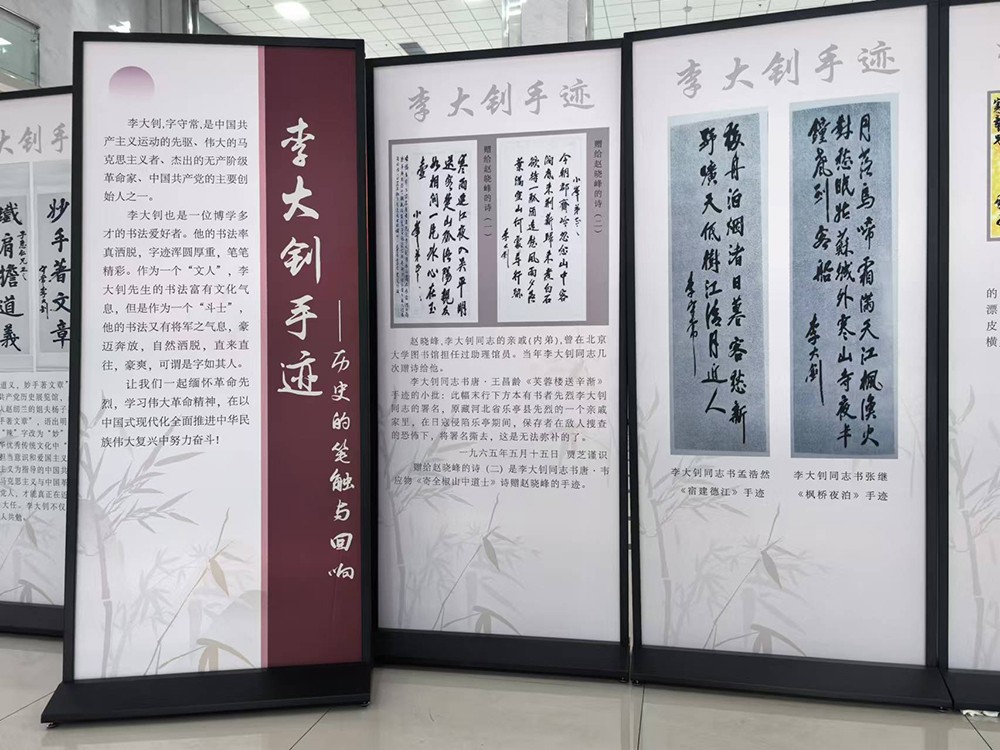 李大钊手迹
妙手著文章
鐵肩擔道義
李大钊,字守常,是中国共
产主义运动的先驱、伟大的马
克思主义者、杰出的无产阶级
革命家、中国共产党的主要创
始人之一。
李大钊也是一位博学多
才的书法爱好者。他的书法率
真洒脱，字迹浑圆厚重，笔笔
精彩。作为一个“文人”，李
大钊先生的书法富有文化气
息，但是作为一个“斗士”，
他的书法又有将军之气息，豪
迈奔放，自然洒脱，直来直
往，豪爽，可谓是字如其人。
让我们一起缅怀革命先
烈，学习伟大革命精神，在以
中国式现代化全面推进中华民
族伟大复兴中努力奋斗！
李大钊手迹
——历史的笔触与回响
李大钊手迹
赠给赵晓峰的诗（二）
今朝郡斋冷忽念山中客
涧底束荆薪归来煮白石
欲持一瓢酒远慰风雨夕落
葉满空山何处寻行跡
赠给赵晓峰的诗（一）
寒雨连江夜入吴平明
送客楚山孤洛陽親友
如相问一片冰心在玉
壶
赵晓峰,李大钊同志的亲戚(内弟),曾在北京
大学图书馆担任过助理馆员。当年李大钊同志几
次赠诗给他。
李大钊同志书唐·王昌龄《芙蓉楼送辛渐》
手迹的小批：此幅末行下方本有书者先烈李大钊
同志的署名，原藏河北省乐亭县先烈的一个亲戚
家里，在日寇侵陷乐亭期间，保存者在敌人搜查
的恐怖下，将署名撕去，这是无法弥补的了。
一九六五年五月十五日 贾芝谨识
赠给赵晓峰的诗（二）是李大钊同志书唐·韦
应物《寄全椒山中道士》诗赠赵晓峰的手迹。
李大钊手迹
移舟泊烟渚日暮客愁新
野曠天低樹江清月近人
李守常
李大钊同志书孟浩然
《宿建德江》手迹
月落烏啼霜满天江楓漁火
對愁眠姑蘇城外寒山寺夜半
鐘聲到客船
李大釗
李大钊同志书张继
《枫桥夜泊》手迹
的
漂
皮
横